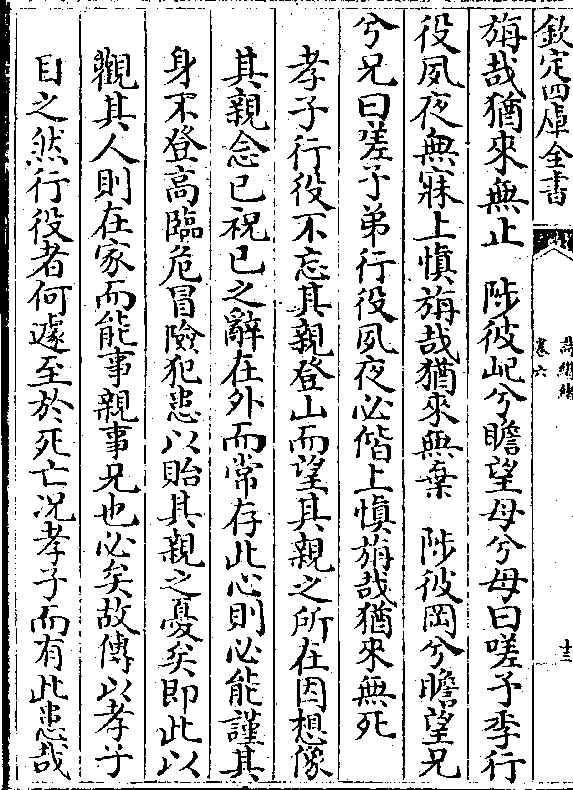 欽定四庫全書
詩纘緒
卷六
十三
旃哉猶來無止　陟彼屺兮瞻望母兮母曰嗟予季行
役夙夜無寐上慎旃哉猶來無棄　陟彼岡兮瞻望兄
兮兄曰嗟予弟行役夙夜必偕上慎旃哉猶來無死
孝子行役不忘其親登山而望其親之所在因想像
其親念已祝已之辭在外而常存此心則必能謹其
身不登高臨危冒險犯患以貽其親之憂矣即此以
觀其人則在家而能事親事兄也必矣故傳以孝子
目之然行役者何遽至於死亡况孝子而有此患哉